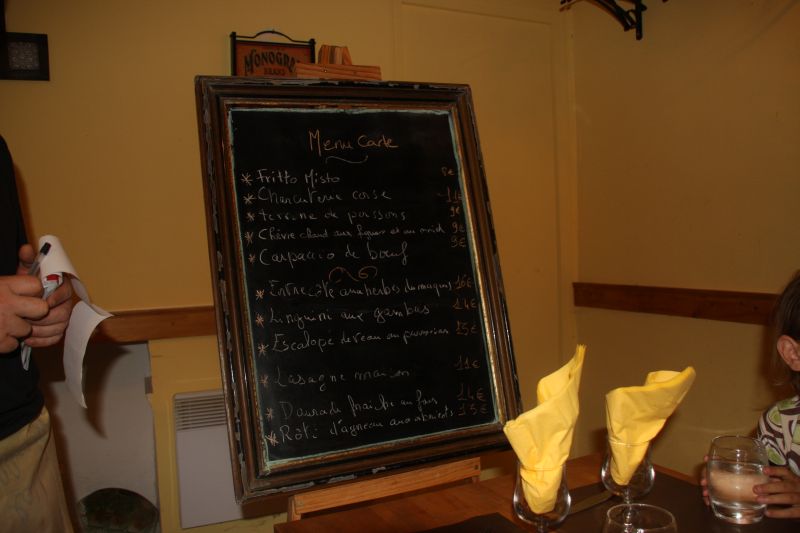 MONOGRAM
BRAND
Menu Carte
* Fritto Misto 8€
* Charcuterie corse 11€
* terrine de poissons 9€
* Chèvre chaud aux figues et au miel 9€
* Carpaccio de bœuf 9€
* Entrecôte aux herbes du maquis 16€
* Linguini aux gambas 14€
* Escalope de veau au parmesan 15€
* Lasagne maison 11€
* Daurade fraîche au four 14€
* Rôti d'agneau aux abricots 15€